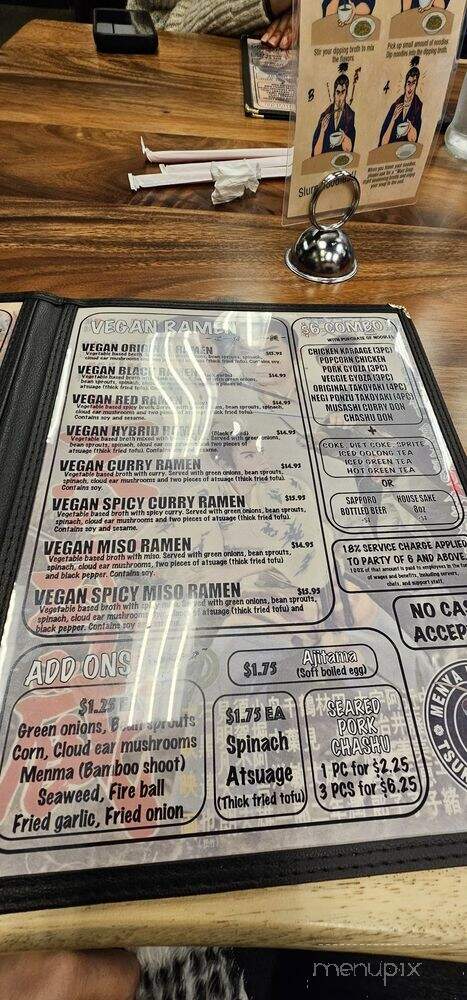 Stir your dipping broth to mix
the flavors.
Pick up small amount of noodles.
Dip noodles into the dipping broth.
3
4
When you finish your noodles,
please ask for a
your soup to the end.
Slurp
VEGAN RAMEN
VEGAN ORIGINAL RAMEN $13.95
Vegetable based broth bean sprouts, spinach,
cloud ear mushrooms (thick fried tofu). Contains soy.
VEGAN BLACK RAMEN $14.95
Vegetable based with green onions,
bean sprouts, spinach,
tofu). Contains soy and sesame.
VEGAN RED RAMEN $14.95
Vegetable based spicy broth. bean sprouts, spinach,
cloud ear mushrooms and two (thick fried tofu).
Contains soy and sesame.
VEGAN HYBRID RAMEN (Black & Red) $14.95
Vegetable broth mixed with Served with green onions,
bean sprouts, spinach, cloud ear and two pieces of
atsuage (thick fried tofu). Contains
VEGAN CURRY RAMEN $14.95
Vegetable based broth with curry. Served with green onions, bean sprouts,
spinach, cloud ear mushrooms and two pieces of atsuage (thick fried tofu).
Contains soy.
VEGAN SPICY CURRY RAMEN $15.95
Vegetable based broth with spicy curry. Served with green onions, bean sprouts,
spinach, cloud ear mushrooms and two pieces of atsuage (thick fried tofu).
Contains soy and sesame.
VEGAN MISO RAMEN $14.95
Vegetable based broth with miso. Served with green onions, bean sprouts,
spinach, cloud ear mushrooms, two pieces of atsuage (thick fried tofu)
and black pepper. Contains soy.
VEGAN SPICY MISO RAMEN $15.95
Vegetable based broth with spicy miso. Served with green onions, bean sprouts,
spinach, cloud ear mushrooms, two pieces of atsuage (thick fried tofu) and
black pepper. Contains soy
$6 COMBO
WITH PURCHASE OF NOODLES
CHICKEN KARAAGE (3PC)
POPCORN CHICKEN
PORK GYOZA (3PC)
VEGGIE GYOZA (3PC)
ORIGINAL TAKOYAKI (4PC)
NEGI PONZU TAKOYAKI (4PC)
MUSASHI CURRY DON
CHASHU DON
+
COKE, DIET COKE, SPRITE
ICED OOLONG TEA
ICED GREEN TEA
HOT GREEN TEA
OR
SAPPORO
BOTTLED BEER
HOUSE SAKE
8oz
18% SERVICE CHARGE APPLIED
TO PARTY OF 6 AND ABOVE.
100% of that amount is paid to employees in the form
of wages and benefits, including servers,
chefs, and support staff.
NO CA
ACCEP
ADD ONS
$1.75 Ajitama
(Soft boiled egg)
$1.25 E
Green onions, Bean sprouts
Corn, Cloud ear mushrooms
Menma (Bamboo shoot)
Seaweed, Fire ball
Fried garlic, Fried onion
$1.75 EA
Spinach
Atsuage
(Thick fried tofu)
SEARED
PORK
CHASHU
1 PC for $2.25
3 PCS for $6.25
MENYA
TSU
menupix